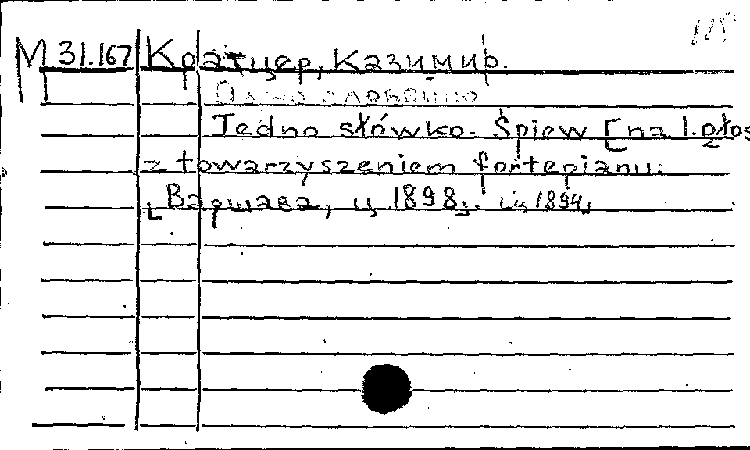 М 31.167 Кратцер, Казимир.
Одно словечко
Jedno słówko. Śpiew [na 1 głos
z towarzyszeniem fortepianu.
[Варшава, ц 1898]. ц 1894]